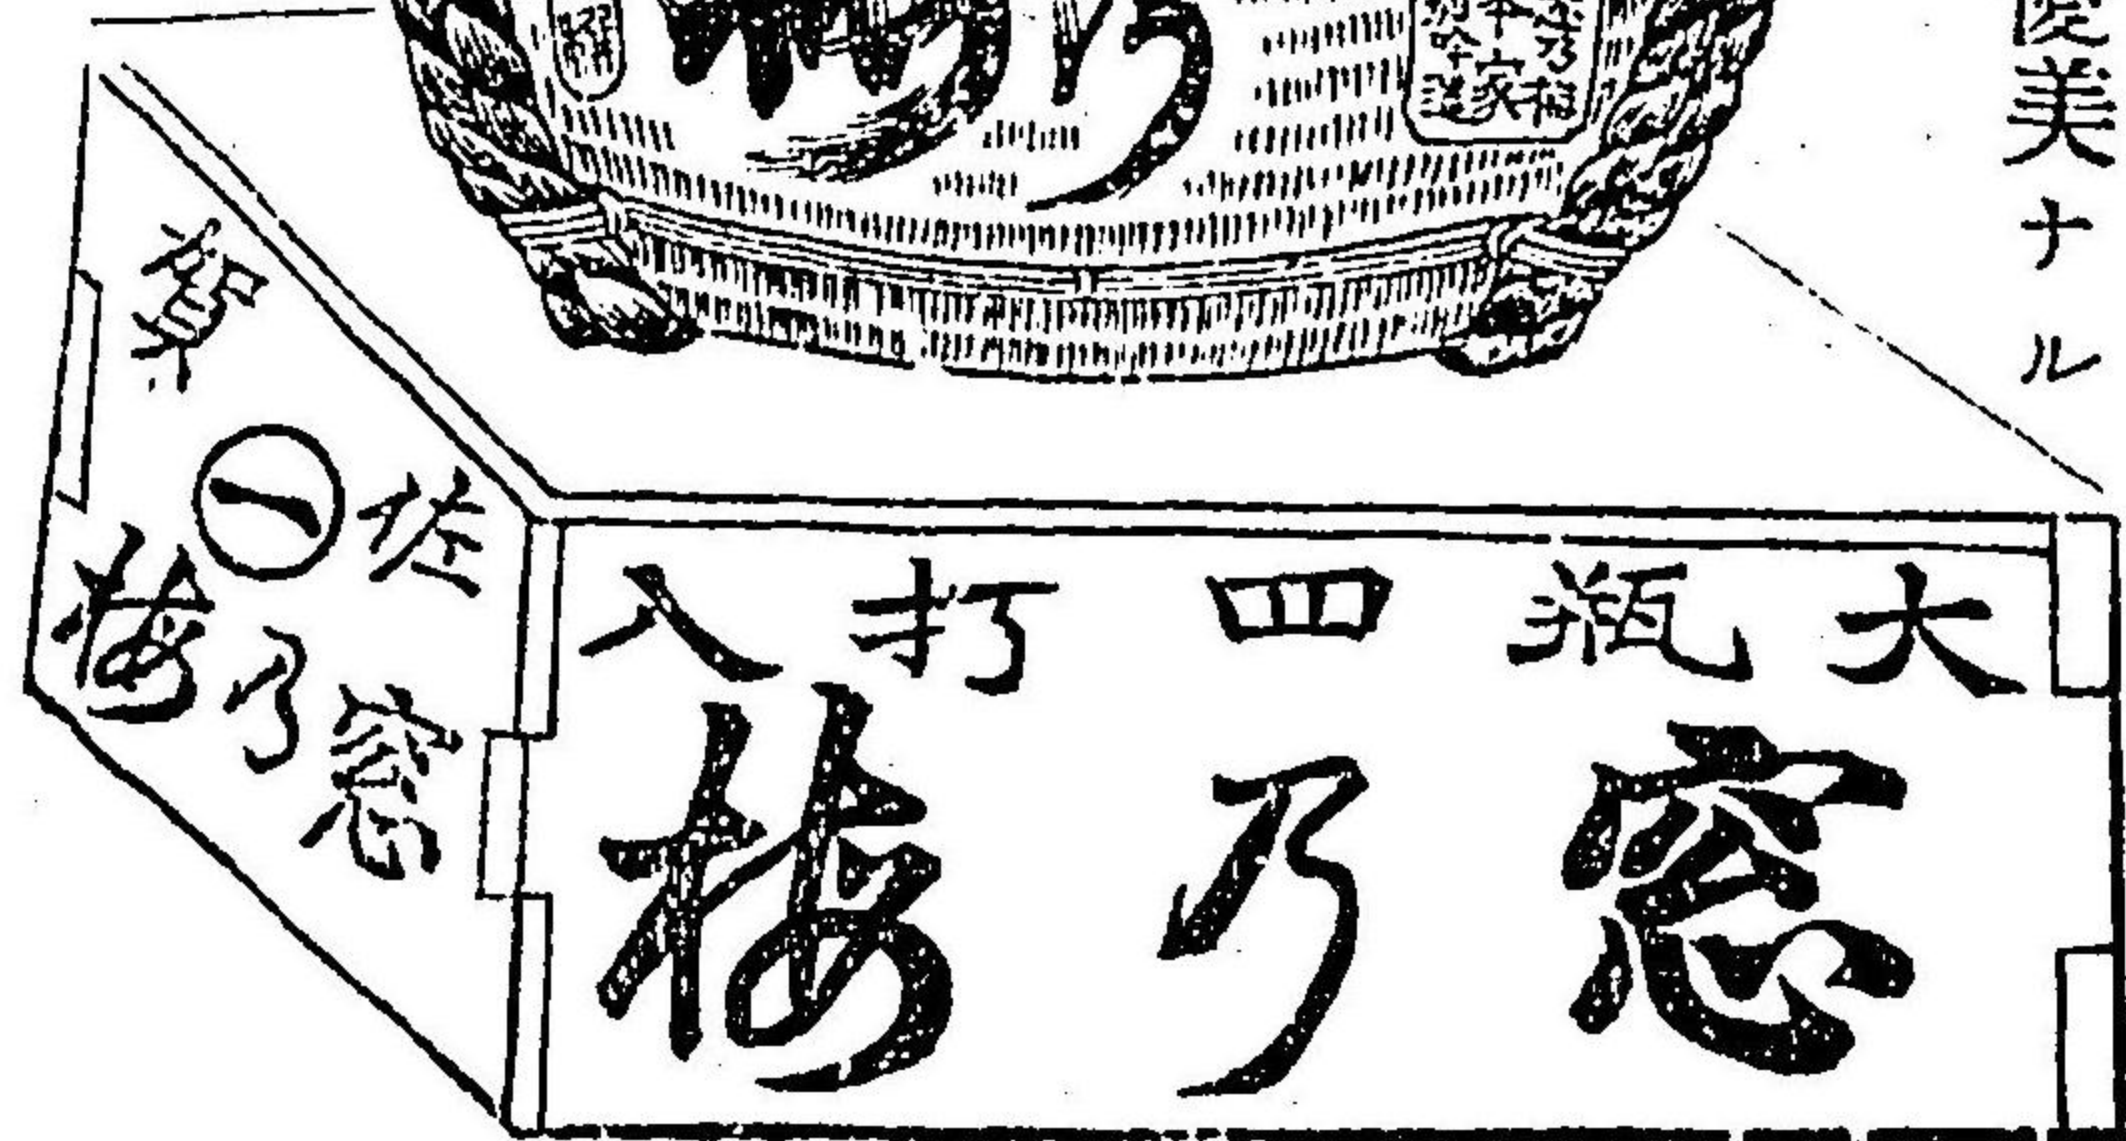 美ナル
乃
大瓶四打入
窓乃梅
佐㊀賀
窓乃梅